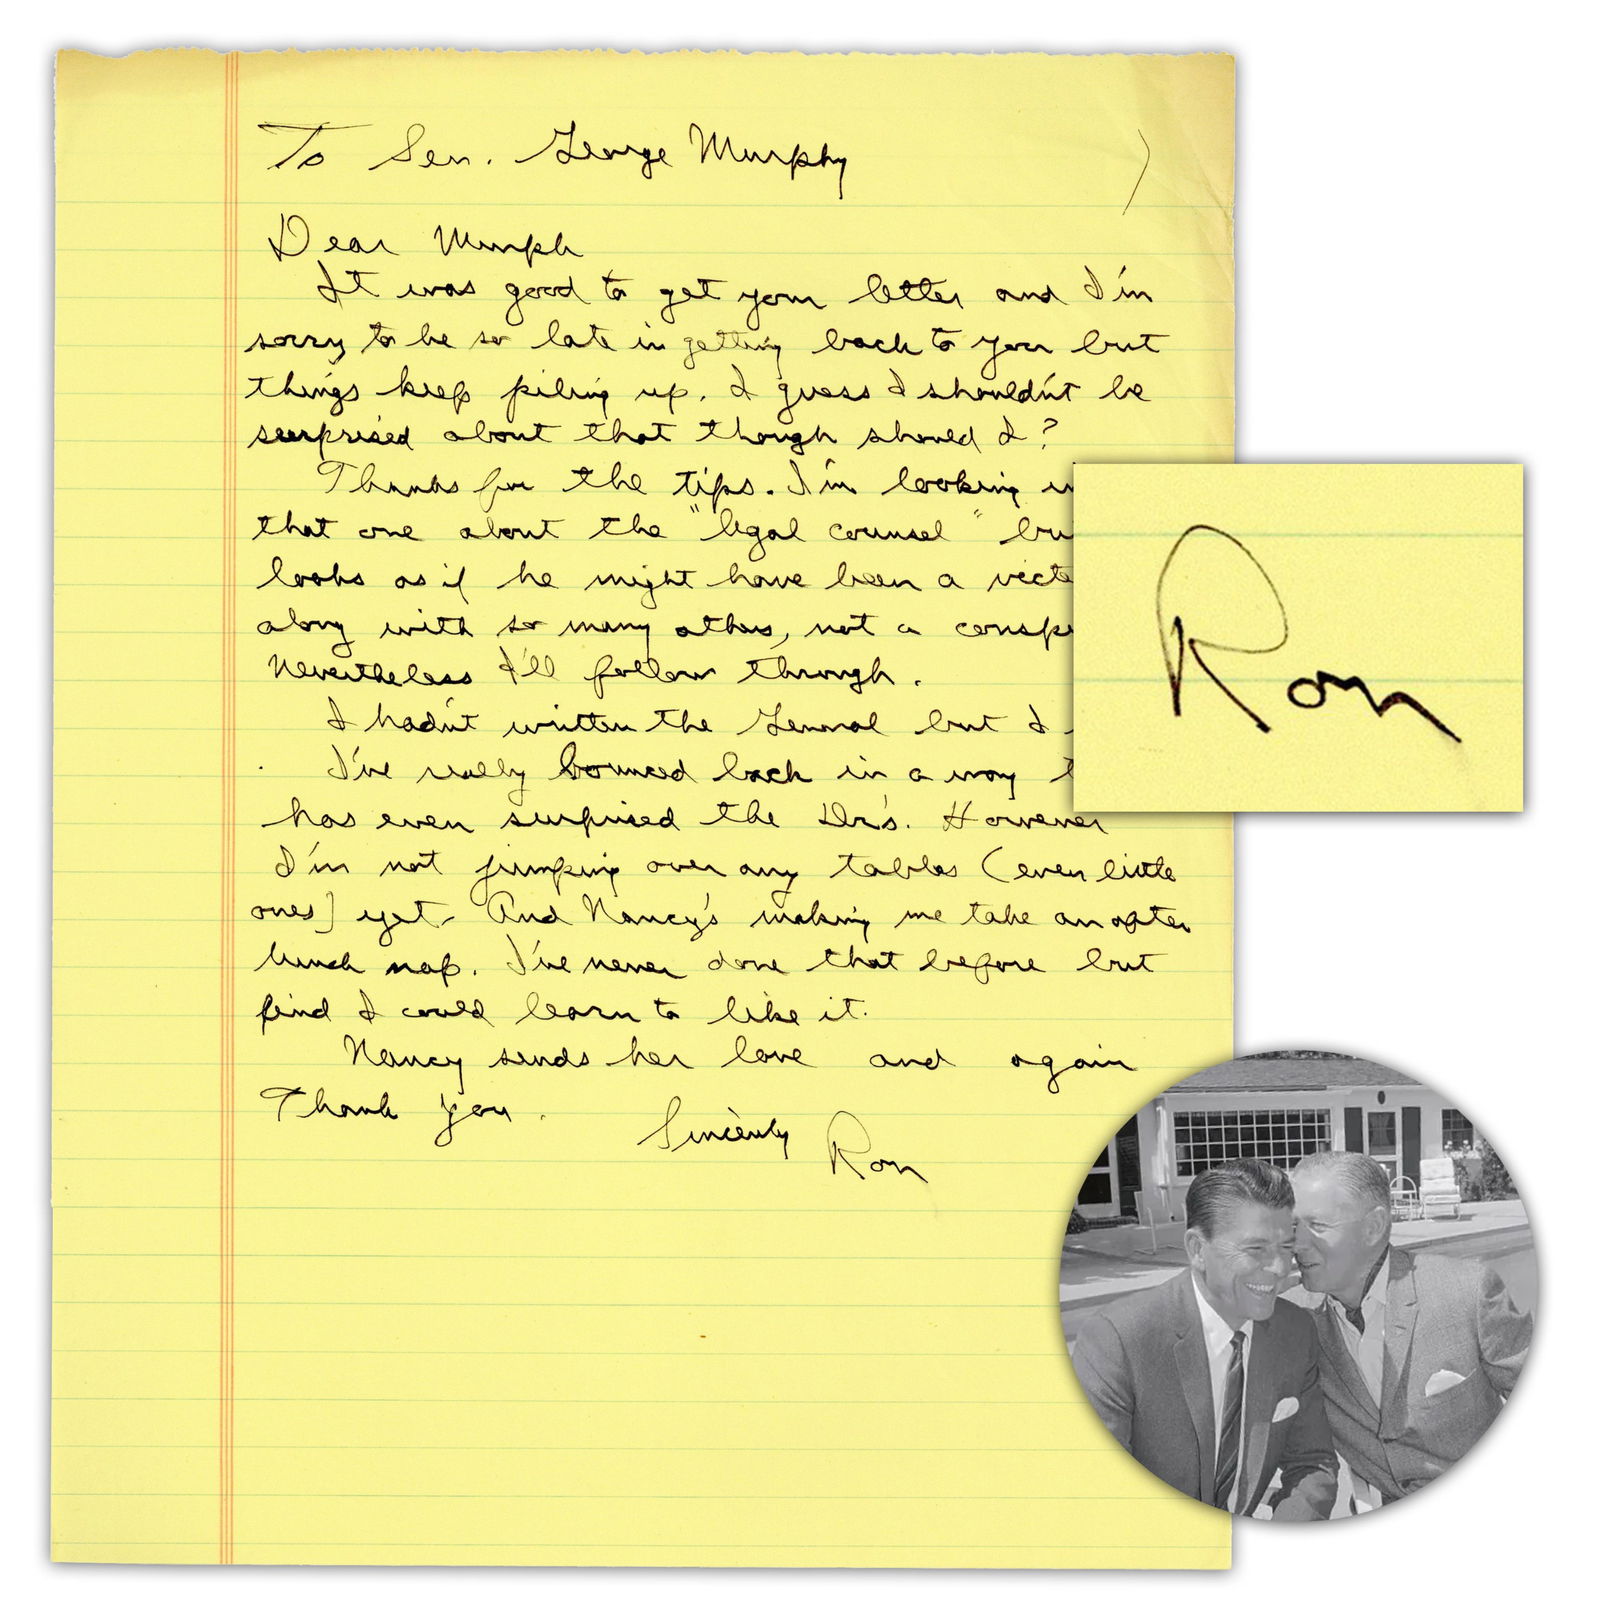 To Sen. George Murphy
Dear Murph
It was good to get your letter and I'm
sorry to be so late in getting back to you but
things keep piling up. I guess I shouldn't be
surprised about that though should I?
Thanks for the tips. I'm looking
that one about the "legal counsel"
looks as if he might have been a
along with so many others, not a
Nevertheless I'll follow through.
I hadn't written the General but I
I've really bounced back in a way
has even surprised the Drs. However
I'm not jumping over any tables (even little
ones) yet. And Nancy's making me take an after
lunch nap. I've never done that before but
find I could learn to like it.
Nancy sends her love and again
Thank you.
Sincerely Ron
Ron